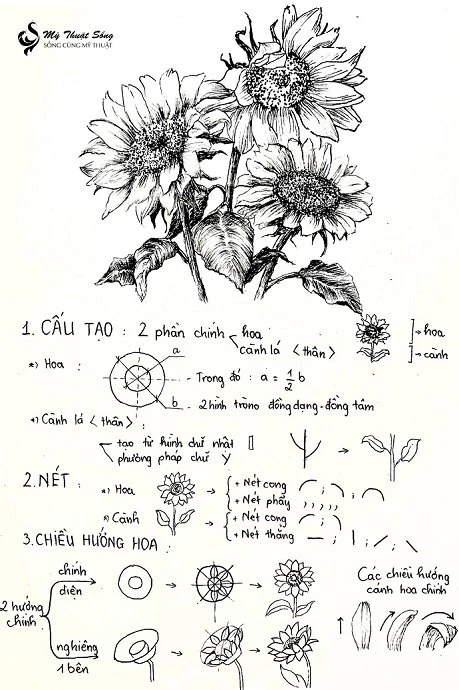 Mỹ Thuật Sống
SỐNG CÙNG MỸ THUẬT
1. CẤU TẠO : 2 phần chính hoa
cành lá <thân>
→ hoa
→ cành
*) Hoa :
a
- Trong đó : a = 1/2 b
b
- 2 hình tròn đồng dạng - đồng tâm
*) Cành lá <thân> :
tạo từ hình chữ nhật
phương pháp chữ Y
2. NÉT :
*) Hoa → + Nét cong
+ Nét phẩy
*) Cành → + Nét cong
+ Nét thẳng
3. CHIỀU HƯỚNG HOA :
2 hướng chính
chính diện
nghiêng 1 bên
Các chiều hướng
cánh hoa chính